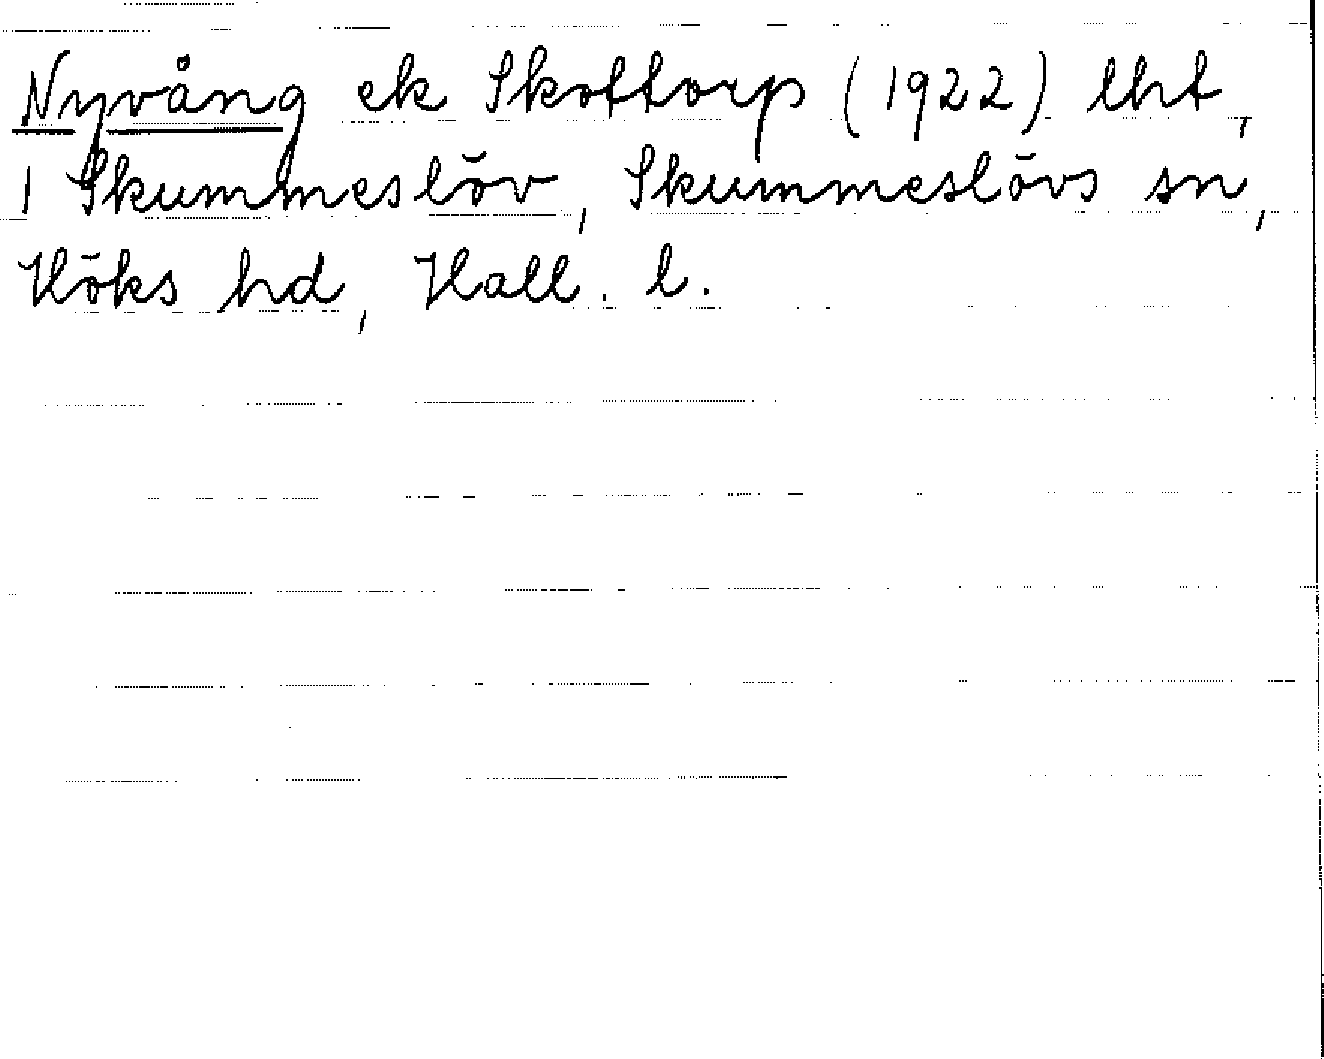 Nyvång ek Skottorp (1922) lht,
1 Skummeslöv, Skummeslövs sn,
Höks hd, Hall. l.